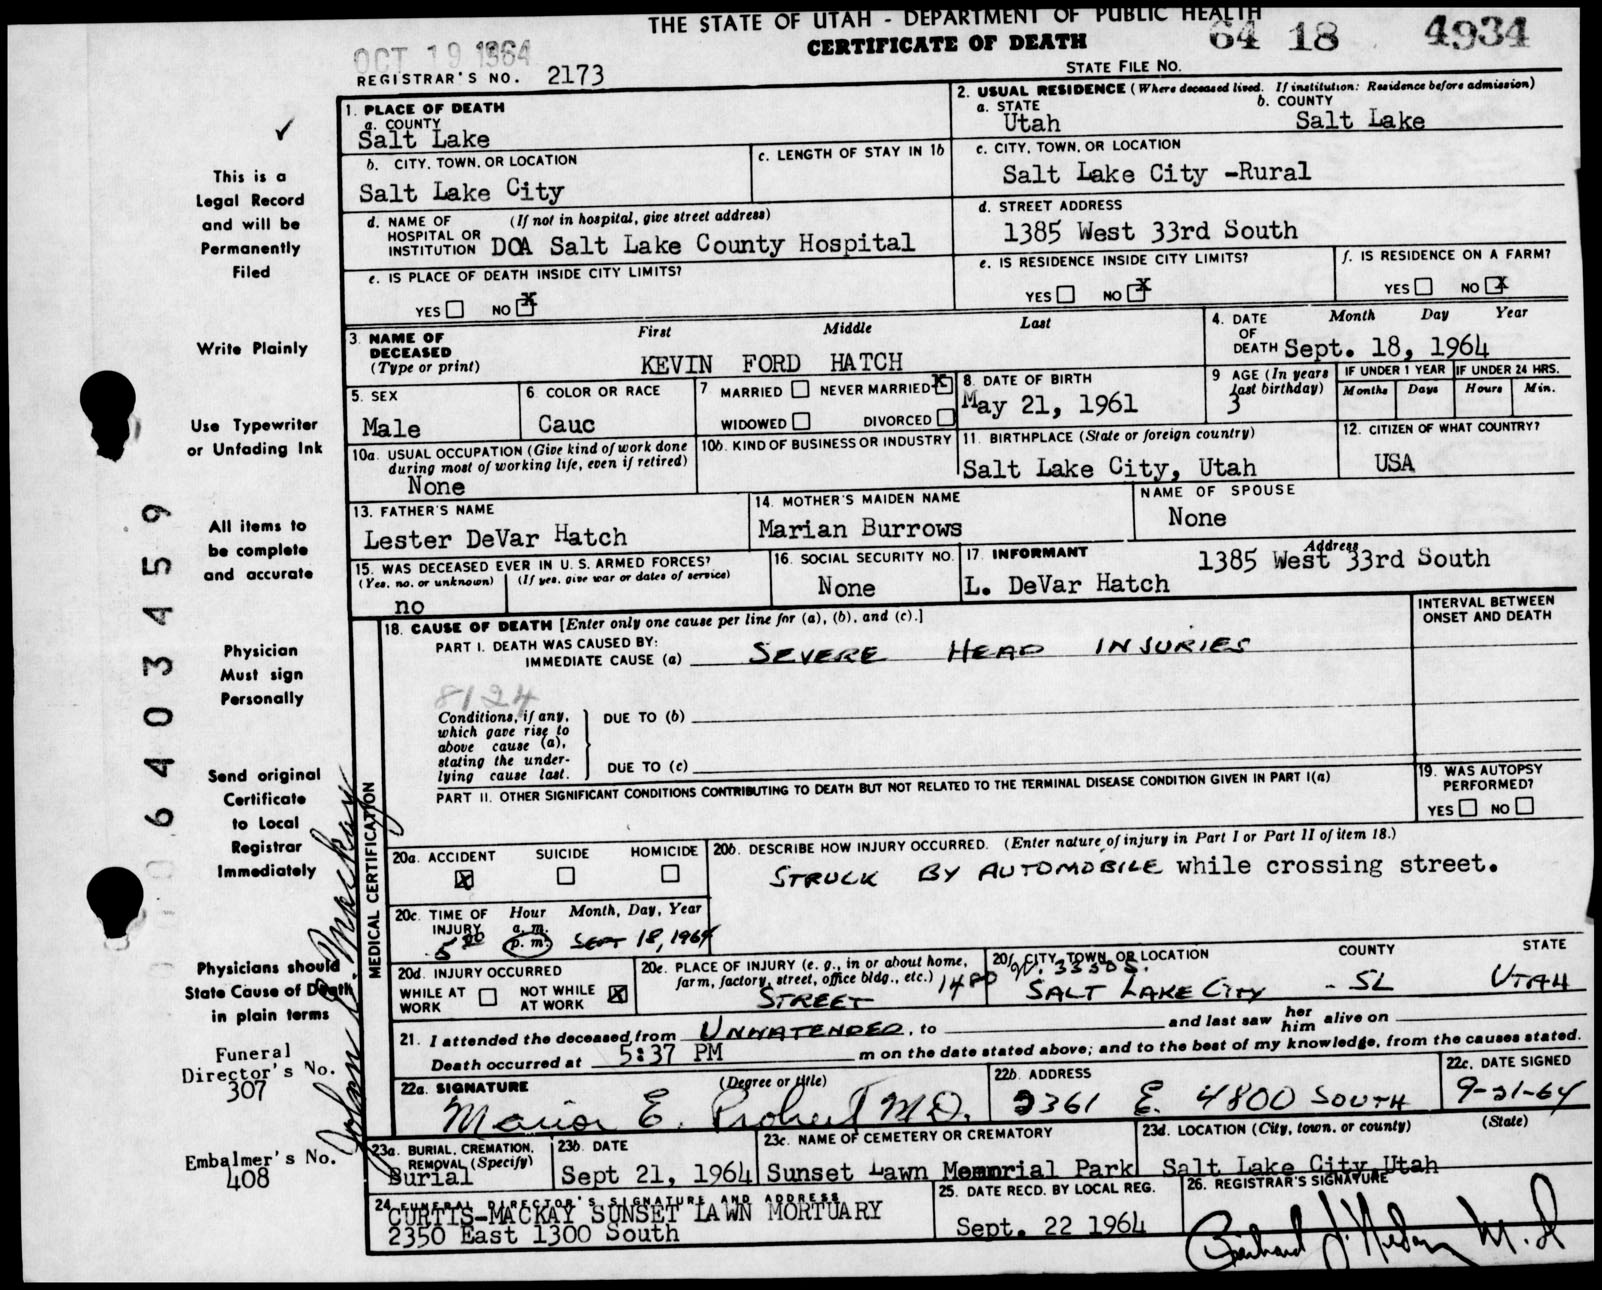 THE STATE OF UTAH - DEPARTMENT OF PUBLIC HEALTH
CERTIFICATE OF DEATH
64 18 4934
OCT 19 1964
REGISTRAR'S NO. 2173
STATE FILE NO.
This is a
Legal Record
and will be
Permanently
Filed
Write Plainly
Use Typewriter
or Unfading Ink
All items to
be complete
and accurate
Physician
Must sign
Personally
Send original
Certificate
to Local
Registrar
Immediately
Physicians should
State Cause of Death
in plain terms
Funeral
Director's No.
307
Embalmer's No.
408
6403459
1. PLACE OF DEATH
a. COUNTY
Salt Lake
b. CITY, TOWN, OR LOCATION
Salt Lake City
c. LENGTH OF STAY IN 1b
d. NAME OF HOSPITAL OR INSTITUTION (If not in hospital, give street address)
DOA Salt Lake County Hospital
e. IS PLACE OF DEATH INSIDE CITY LIMITS?
YES NO X
2. USUAL RESIDENCE (Where deceased lived. If institution: Residence before admission)
a. STATE b. COUNTY
Utah Salt Lake
c. CITY, TOWN, OR LOCATION
Salt Lake City -Rural
d. STREET ADDRESS
1385 West 33rd South
e. IS RESIDENCE INSIDE CITY LIMITS?
YES NO X
f. IS RESIDENCE ON A FARM?
YES NO X
3. NAME OF DECEASED (Type or print)
First Middle Last
KEVIN FORD HATCH
4. DATE OF DEATH Month Day Year
Sept. 18, 1964
5. SEX
Male
6. COLOR OR RACE
Cauc
7. MARRIED NEVER MARRIED X
WIDOWED DIVORCED
8. DATE OF BIRTH
May 21, 1961
9 AGE (In years last birthday)
3
IF UNDER 1 YEAR IF UNDER 24 HRS.
Months Days Hours Min.
10a. USUAL OCCUPATION (Give kind of work done during most of working life, even if retired)
None
10b. KIND OF BUSINESS OR INDUSTRY
11. BIRTHPLACE (State or foreign country)
Salt Lake City, Utah
12. CITIZEN OF WHAT COUNTRY?
USA
13. FATHER'S NAME
Lester DeVar Hatch
14. MOTHER'S MAIDEN NAME
Marian Burrows
NAME OF SPOUSE
None
15. WAS DECEASED EVER IN U. S. ARMED FORCES?
(Yes, no, or unknown) (If yes, give war or dates of service)
no
16. SOCIAL SECURITY NO.
None
17. INFORMANT Address
L. DeVar Hatch 1385 West 33rd South
MEDICAL CERTIFICATION
18. CAUSE OF DEATH [Enter only one cause per line for (a), (b), and (c).]
INTERVAL BETWEEN ONSET AND DEATH
PART I. DEATH WAS CAUSED BY:
IMMEDIATE CAUSE (a) SEVERE HEAD INJURIES
8124
Conditions, if any, which gave rise to above cause (a), stating the underlying cause last.
DUE TO (b)
DUE TO (c)
PART II. OTHER SIGNIFICANT CONDITIONS CONTRIBUTING TO DEATH BUT NOT RELATED TO THE TERMINAL DISEASE CONDITION GIVEN IN PART I(a)
19. WAS AUTOPSY PERFORMED?
YES NO
20a. ACCIDENT SUICIDE HOMICIDE
X
20b. DESCRIBE HOW INJURY OCCURRED. (Enter nature of injury in Part I or Part II of item 18.)
STRUCK BY AUTOMOBILE while crossing street.
20c. TIME OF INJURY Hour Month, Day, Year
5 00 a. m. p. m. SEPT 18, 1964
20d. INJURY OCCURRED
WHILE AT WORK NOT WHILE AT WORK X
20e. PLACE OF INJURY (e. g., in or about home, farm, factory, street, office bldg., etc.)
STREET
20f. CITY, TOWN, OR LOCATION COUNTY STATE
1480 W. 3350 S.
SALT LAKE CITY - SL UTAH
21. I attended the deceased from UNNATENDED, to and last saw her him alive on
Death occurred at 5:37 PM m on the date stated above; and to the best of my knowledge, from the causes stated.
22a. SIGNATURE (Degree or title)
E. M.D.
22b. ADDRESS
2361 E. 4800 SOUTH
22c. DATE SIGNED
9-21-64
23a. BURIAL, CREMATION, REMOVAL (Specify)
Burial
23b. DATE
Sept 21, 1964
23c. NAME OF CEMETERY OR CREMATORY
Sunset Lawn Memorial Park
23d. LOCATION (City, town, or county) (State)
Salt Lake City, Utah
24 FUNERAL DIRECTOR'S SIGNATURE AND ADDRESS
CURTIS-MACKAY SUNSET LAWN MORTUARY
2350 East 1300 South
25. DATE RECD. BY LOCAL REG.
Sept. 22 1964
26. REGISTRAR'S SIGNATURE